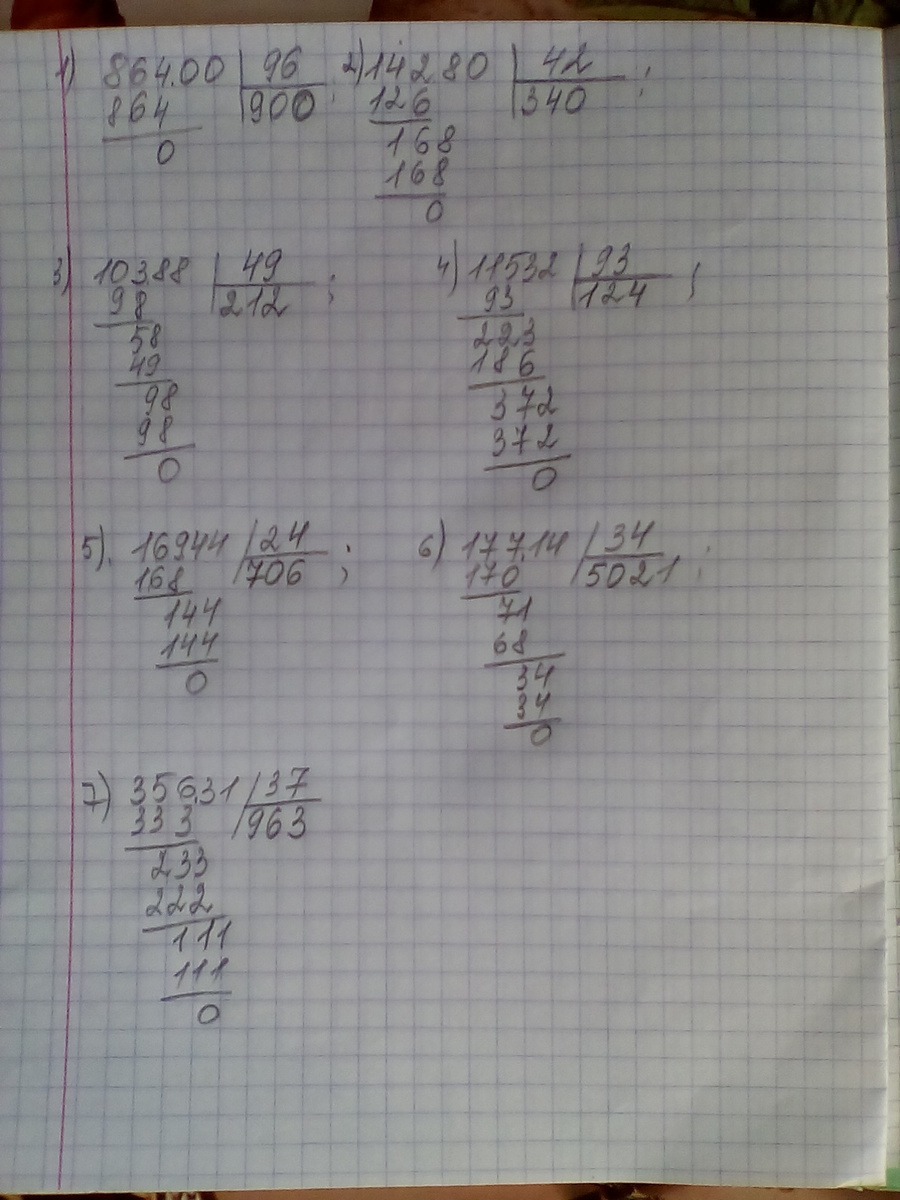 1) 864.00 96 2) 14280 42 ;
864 900 ; 126 340
0 168
168
0
3) 10388 49 ; 4) 11532 93 ;
98 212 93 124
58 223
49 186
98 372
98 372
0 0
5). 16944 24 ; 6) 177.14 34 ;
168 706 170 5021
144 71
144 68
0 34
34
0
7) 356.31 37
333 963
233
222
111
111
0